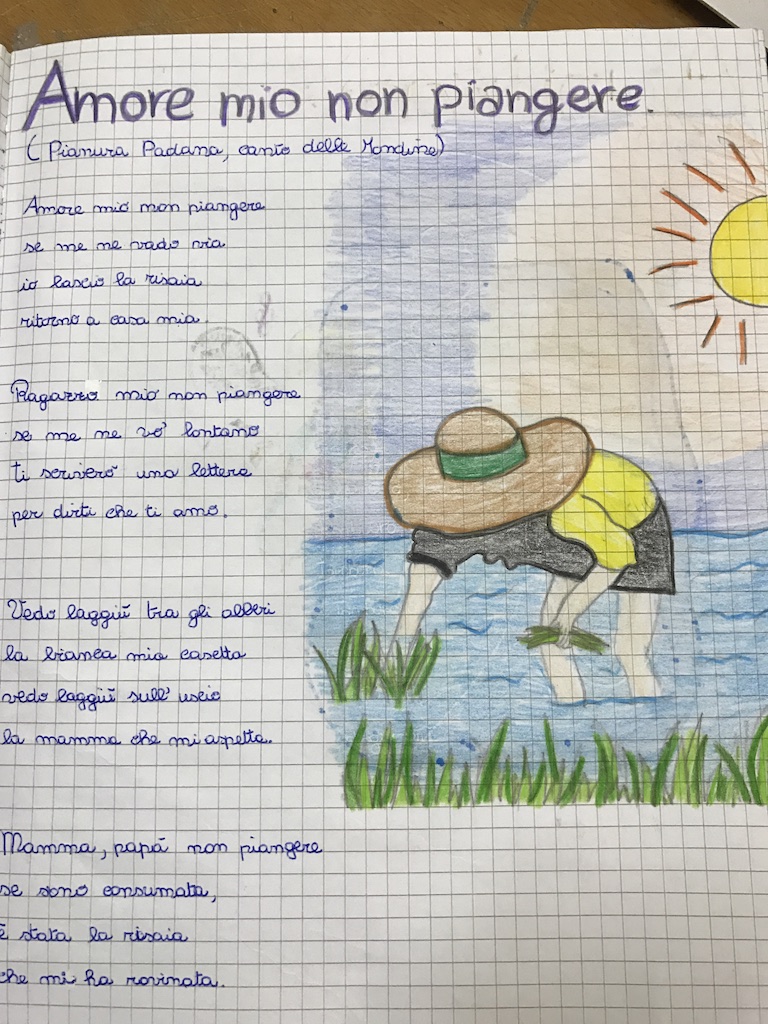 Amore mio non piangere.
(Pianura Padana, canto delle Mondine)
Amore mio non piangere
se me ne vado via
io lascio la risaia
ritorno a casa mia.
Ragazzo mio non piangere
se me ne vo' lontano
ti scriverò una lettera
per dirti che ti amo.
Vedo laggiù tra gli alberi
la bianca mia casetta
vedo laggiù sull'uscio
la mamma che mi aspetta.
Mamma, papà non piangere
se sono consumata,
è stata la risaia
che mi ha rovinata.